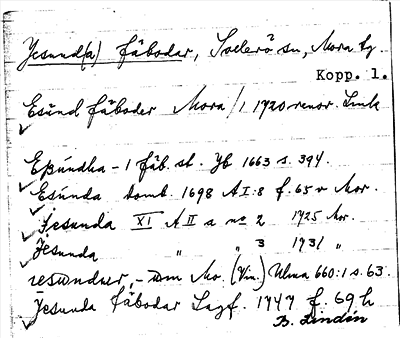 Jesund(a) fäbodar, Sollerö sn, Mora tg.
Kopp. l.
Esund fäboder Mora/1 1720 renov. Link
Esundha - 1 fäb. st. Jb 1663 s. 394.
Esunda domb. 1698 A I:8 f. 65 v Mor.
Jesunda XI A II a nº 2 1725 Mor.
Jesunda " " 3 1731 "
Mo. (Vin.) Ulma 660:1 s. 63.
Jesunda fäbodar Lagf. 1747 f. 69 h
B. Lindén